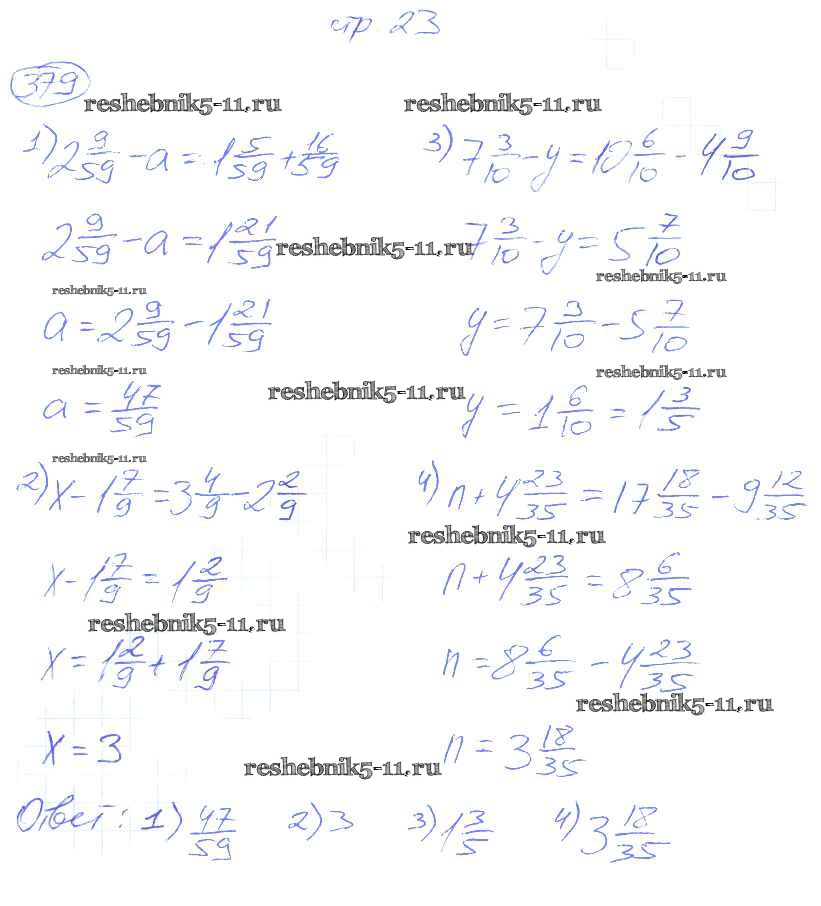 стр. 23
379
reshebnik5-11.ru reshebnik5-11.ru
1) 2 9/59 - a = 1 5/59 + 16/59
3) 7 3/10 - y = 10 6/10 - 4 9/10
2 9/59 - a = 1 21/59
reshebnik5-11.ru
7 3/10 - y = 5 7/10
reshebnik5-11.ru
reshebnik5-11.ru
a = 2 9/59 - 1 21/59
y = 7 3/10 - 5 7/10
reshebnik5-11.ru
reshebnik5-11.ru
reshebnik5-11.ru
a = 47/59
y = 1 6/10 = 1 3/5
reshebnik5-11.ru
2) x - 1 7/9 = 3 4/9 - 2 2/9
4) n + 4 23/35 = 17 18/35 - 9 12/35
reshebnik5-11.ru
x - 1 7/9 = 1 2/9
n + 4 23/35 = 8 6/35
reshebnik5-11.ru
x = 1 2/9 + 1 7/9
n = 8 6/35 - 4 23/35
reshebnik5-11.ru
x = 3
n = 3 18/35
reshebnik5-11.ru
Ответ: 1) 47/59 2) 3 3) 1 3/5 4) 3 18/35